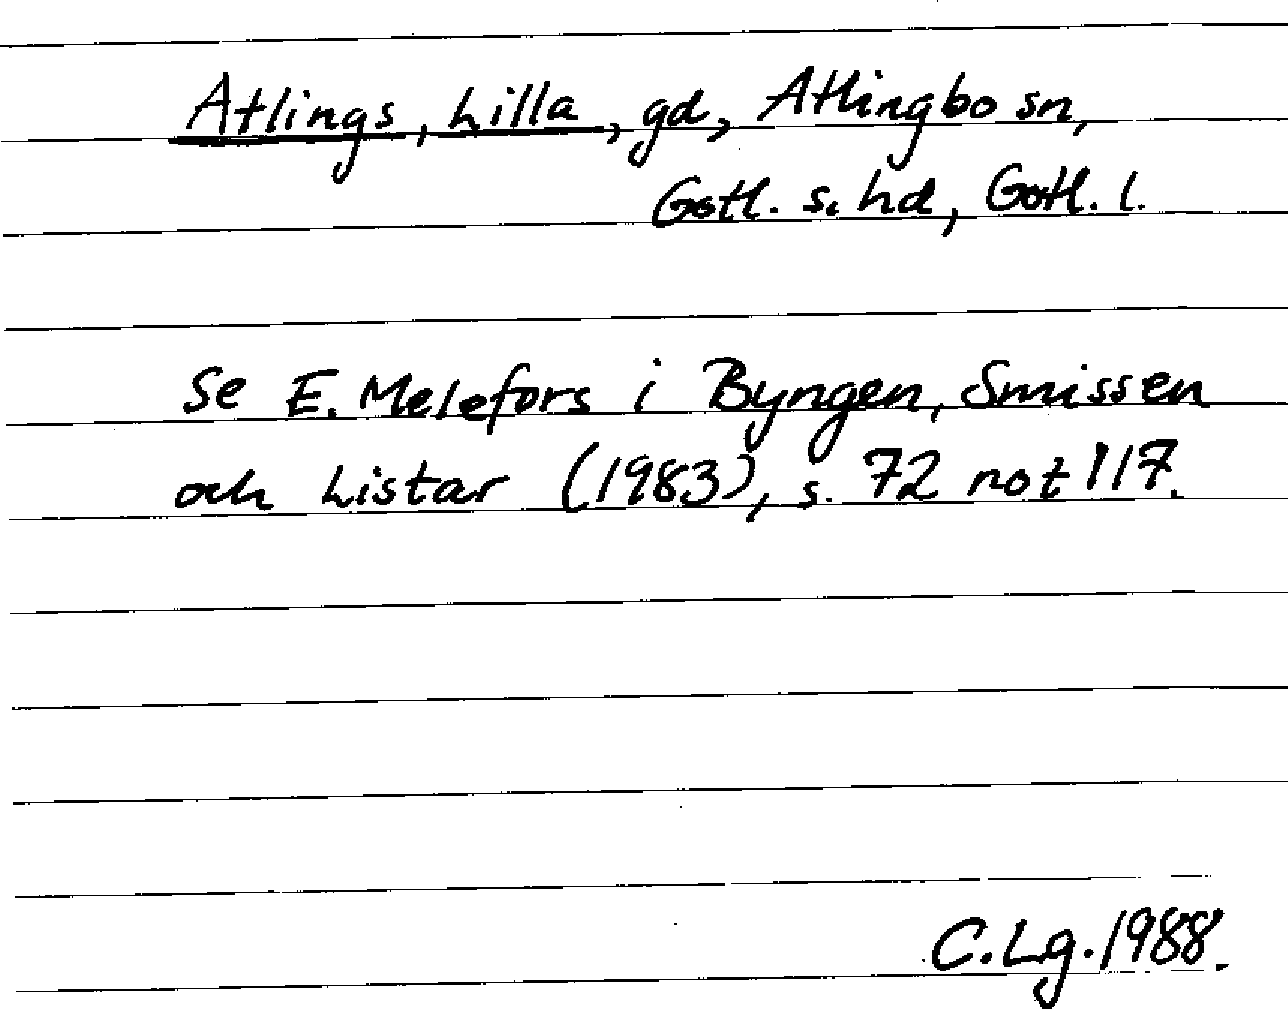 Atlings, Lilla, gd, Atlingbo sn,
Gotl. s. hd, Gotl. l.
Se E. Melefors i Byngen, Smissen
och Listar (1983), s. 72 not 117.
C.Lg.1988.